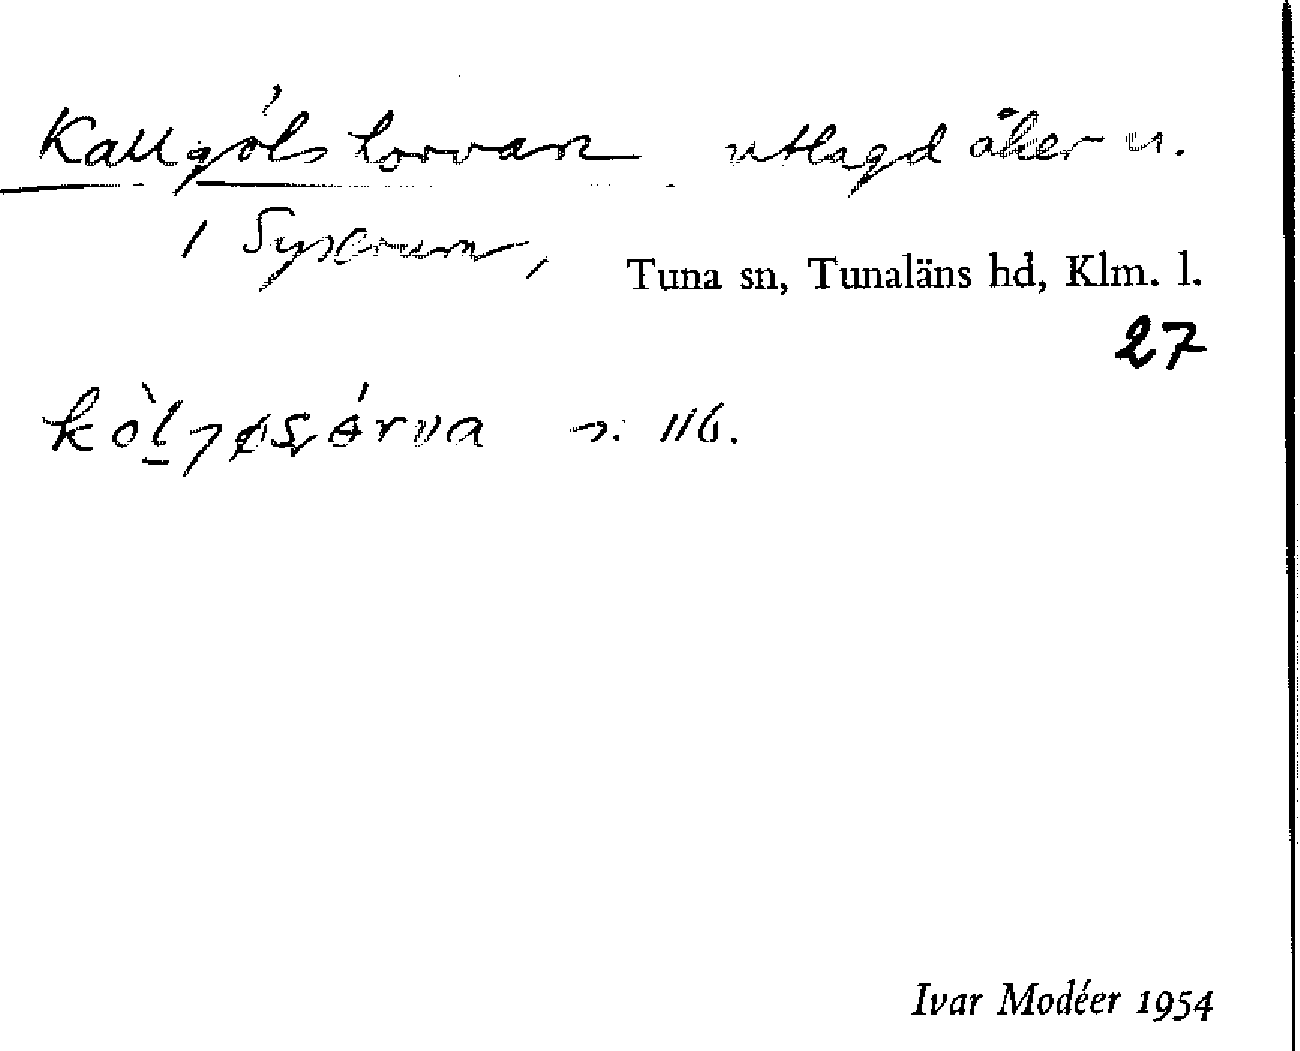 Kallgöls horvan utlagd åker u.
i Syserum,
Tuna sn, Tunaläns hd, Klm. l.
27
s. 116.
Ivar Modéer 1954